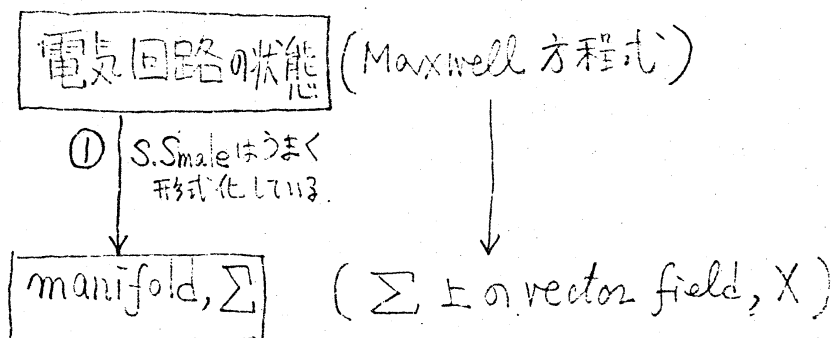 電気回路の状態 (Maxwell 方程式)
① S.Smaleはうまく
形式化している.
manifold, Σ ( Σ 上の vector field, X )